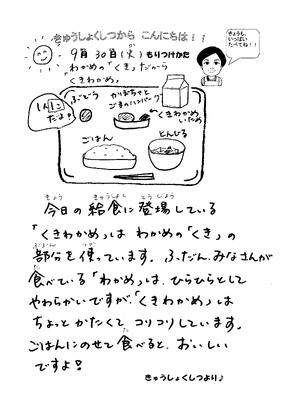 きゅうしょくしつから こんにちは!!
きょうも、
いっぱい
たべてね!!
9月30日(火) もりつけかた
わかめの「くき」だから
くきわかめ。
1人1こ
だよ
ぶどう
かぼちゃと
ごまのハンバーグ
くきわかめ
いため
ごはん
とんじる
今日の給食に登場している
「くきわかめ」は わかめの「くき」の
部分を使っています。ふだん、みなさんが
食べている「わかめ」は、ひらひらとして
やわらかいですが、「くきわかめ」は
ちょっと かたくて コリコリしています。
ごはんにのせて 食べると、おいしい
ですよ!
きゅうしょくしつより♪